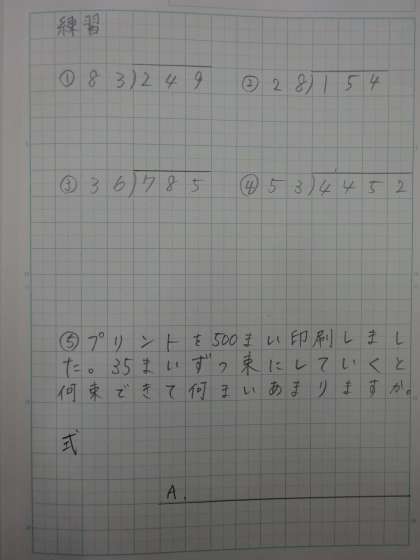 練習
① 83)249 ② 28)154
③ 36)785 ④ 53)4452
⑤プリントを500まい印刷しまし
た。35まいずつ束にしていくと
何束できて何まいあまりますか。
式
A.